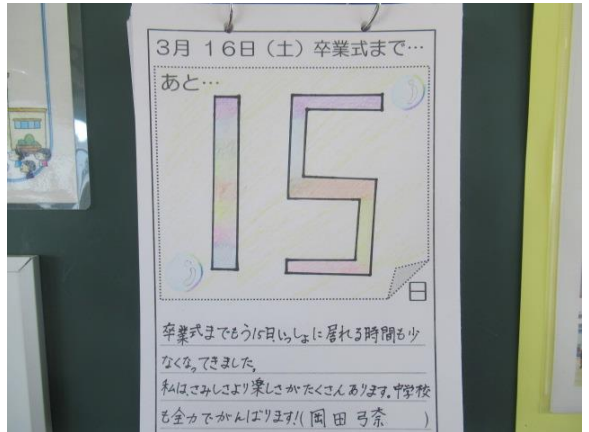 3月 16日(土)卒業式まで…
あと…
15
日
卒業式までもう15日、いっしょに居れる時間も少
なくなってきました。
私は、さみしさより楽しさがたくさんあります。中学校
も全力でがんばります!(岡田弓奈 )